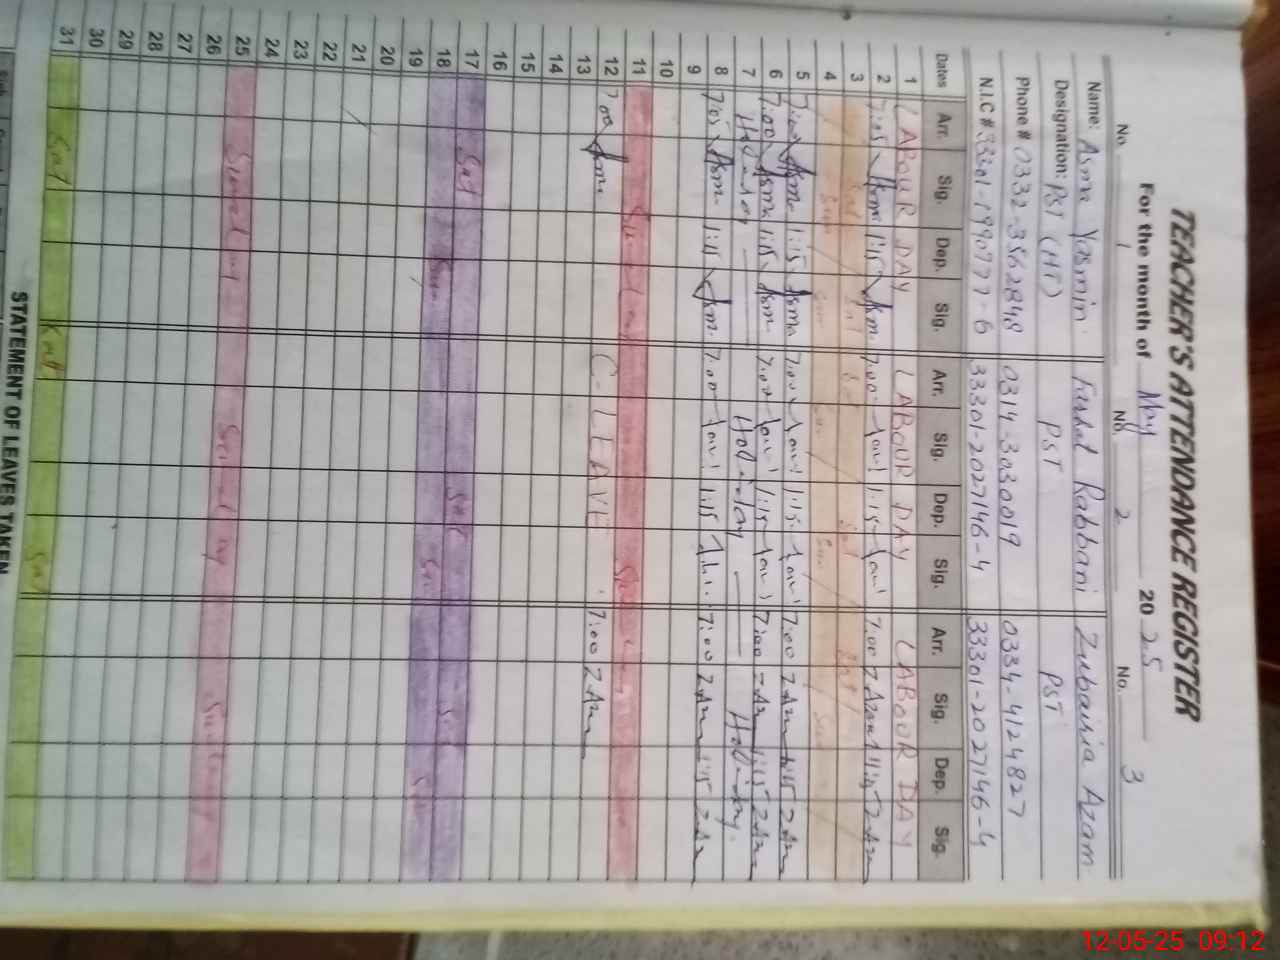 TEACHER'S ATTENDANCE REGISTER
For the month of May 2025
No. 1 No. 2 No. 3
Name: Asma Yasmin Rabbani Zubairia Azam
Designation: PST (HT) PST PST
Phone # 0332-3562848 0314-3030019 0334-4124827
N.I.C # 33301-1990777-6 33301-2027146-4 33301-2027146-4
Dates Arr. Sig. Dep. Sig. Arr. Sig. Dep. Sig. Arr. Sig. Dep. Sig.
1 LABOUR DAY LABOUR DAY LABOUR DAY
2 7:05 1:15 7:00 1:15 7:00
3 Sat Sat Sat Sat
4 Sun Sun Sun Sun
5 7:00 Asma 1:15 Asma 7:00 1:15 7:00 1:15
6 7:00 Asma 1:15 7:00 1:15 7:00 1:15
7 Holiday Holiday Holiday
8 7:05 1:15 7:00 1:15 7:00 1:15
9
10
11 Sunday
12 7:00 C-LEAVE 7:00
13
14
15
16
17 Sat Sat Sat
18 Sun Sun Sun
19
20
21
22
23
24
25 Sunday Sunday Sunday
26
27
28
29
30
31 Sat Sat Sat
STATEMENT OF LEAVES TAKEN
12-05-25 09:12